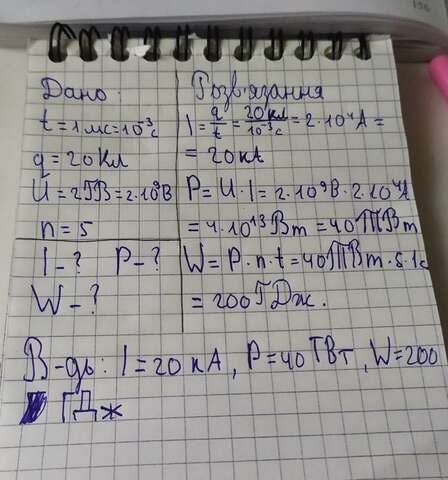 Дано:
t = 1 мс = 10⁻³ с
q = 20 Кл
U = 2 ГВ = 2·10⁹ В
n = 5
I - ? P - ?
W - ?
Розв'язання
I = q/t = 20 Кл/10⁻³ с = 2·10⁴ А =
= 20 кА
P = U · I = 2·10⁹ В · 2·10⁴ А
= 4·10¹³ Вт = 40 ТВт
W = P · n · t = 40 ТВт · 5 · 1с
= 200 ГДж.
В-дь: I = 20 кА, P = 40 ТВт, W = 200
ГДж